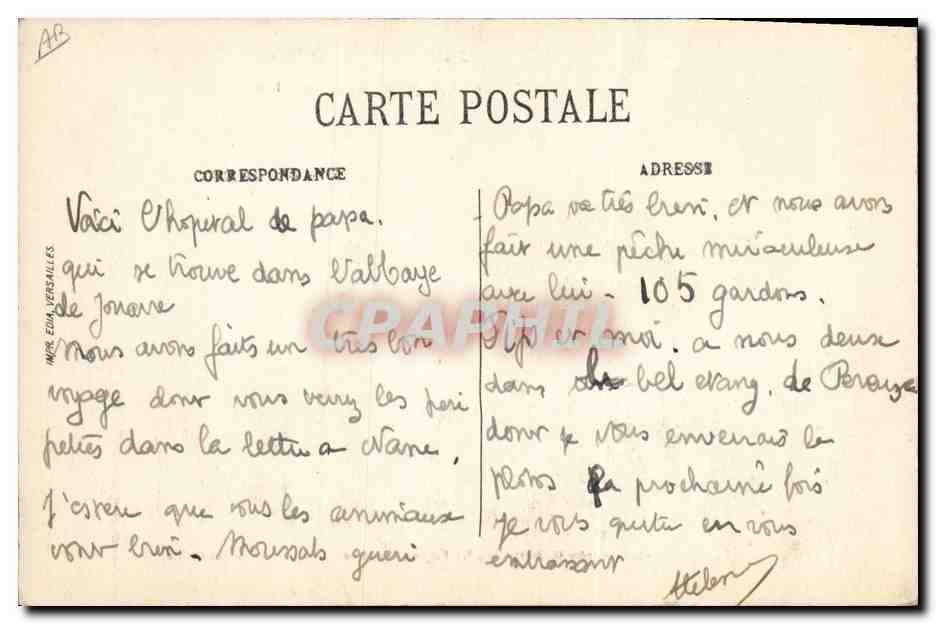 AB
CARTE POSTALE
CORRESPONDANCE
Voici l'hopital de papa.
qui se trouve dans l'abbaye
de Jouarre
Nous avons faits un très bon
voyage dont vous verrez les peri
peties dans la lettre a Nane.
J'espere que tous les animaux
vont bien. Moussats gueri
ADRESSE
Papa va très bien, et nous avons
fait une pêche miraculeuse
avec lui - 105 gardons.
et moi. a nous deux
dans bel etang. de Perouze
dont je vous enverrais le
la prochaine fois
Je vous quitte en vous
embrassant
IMPR. EDIA, VERSAILLES.
CPAPHIL